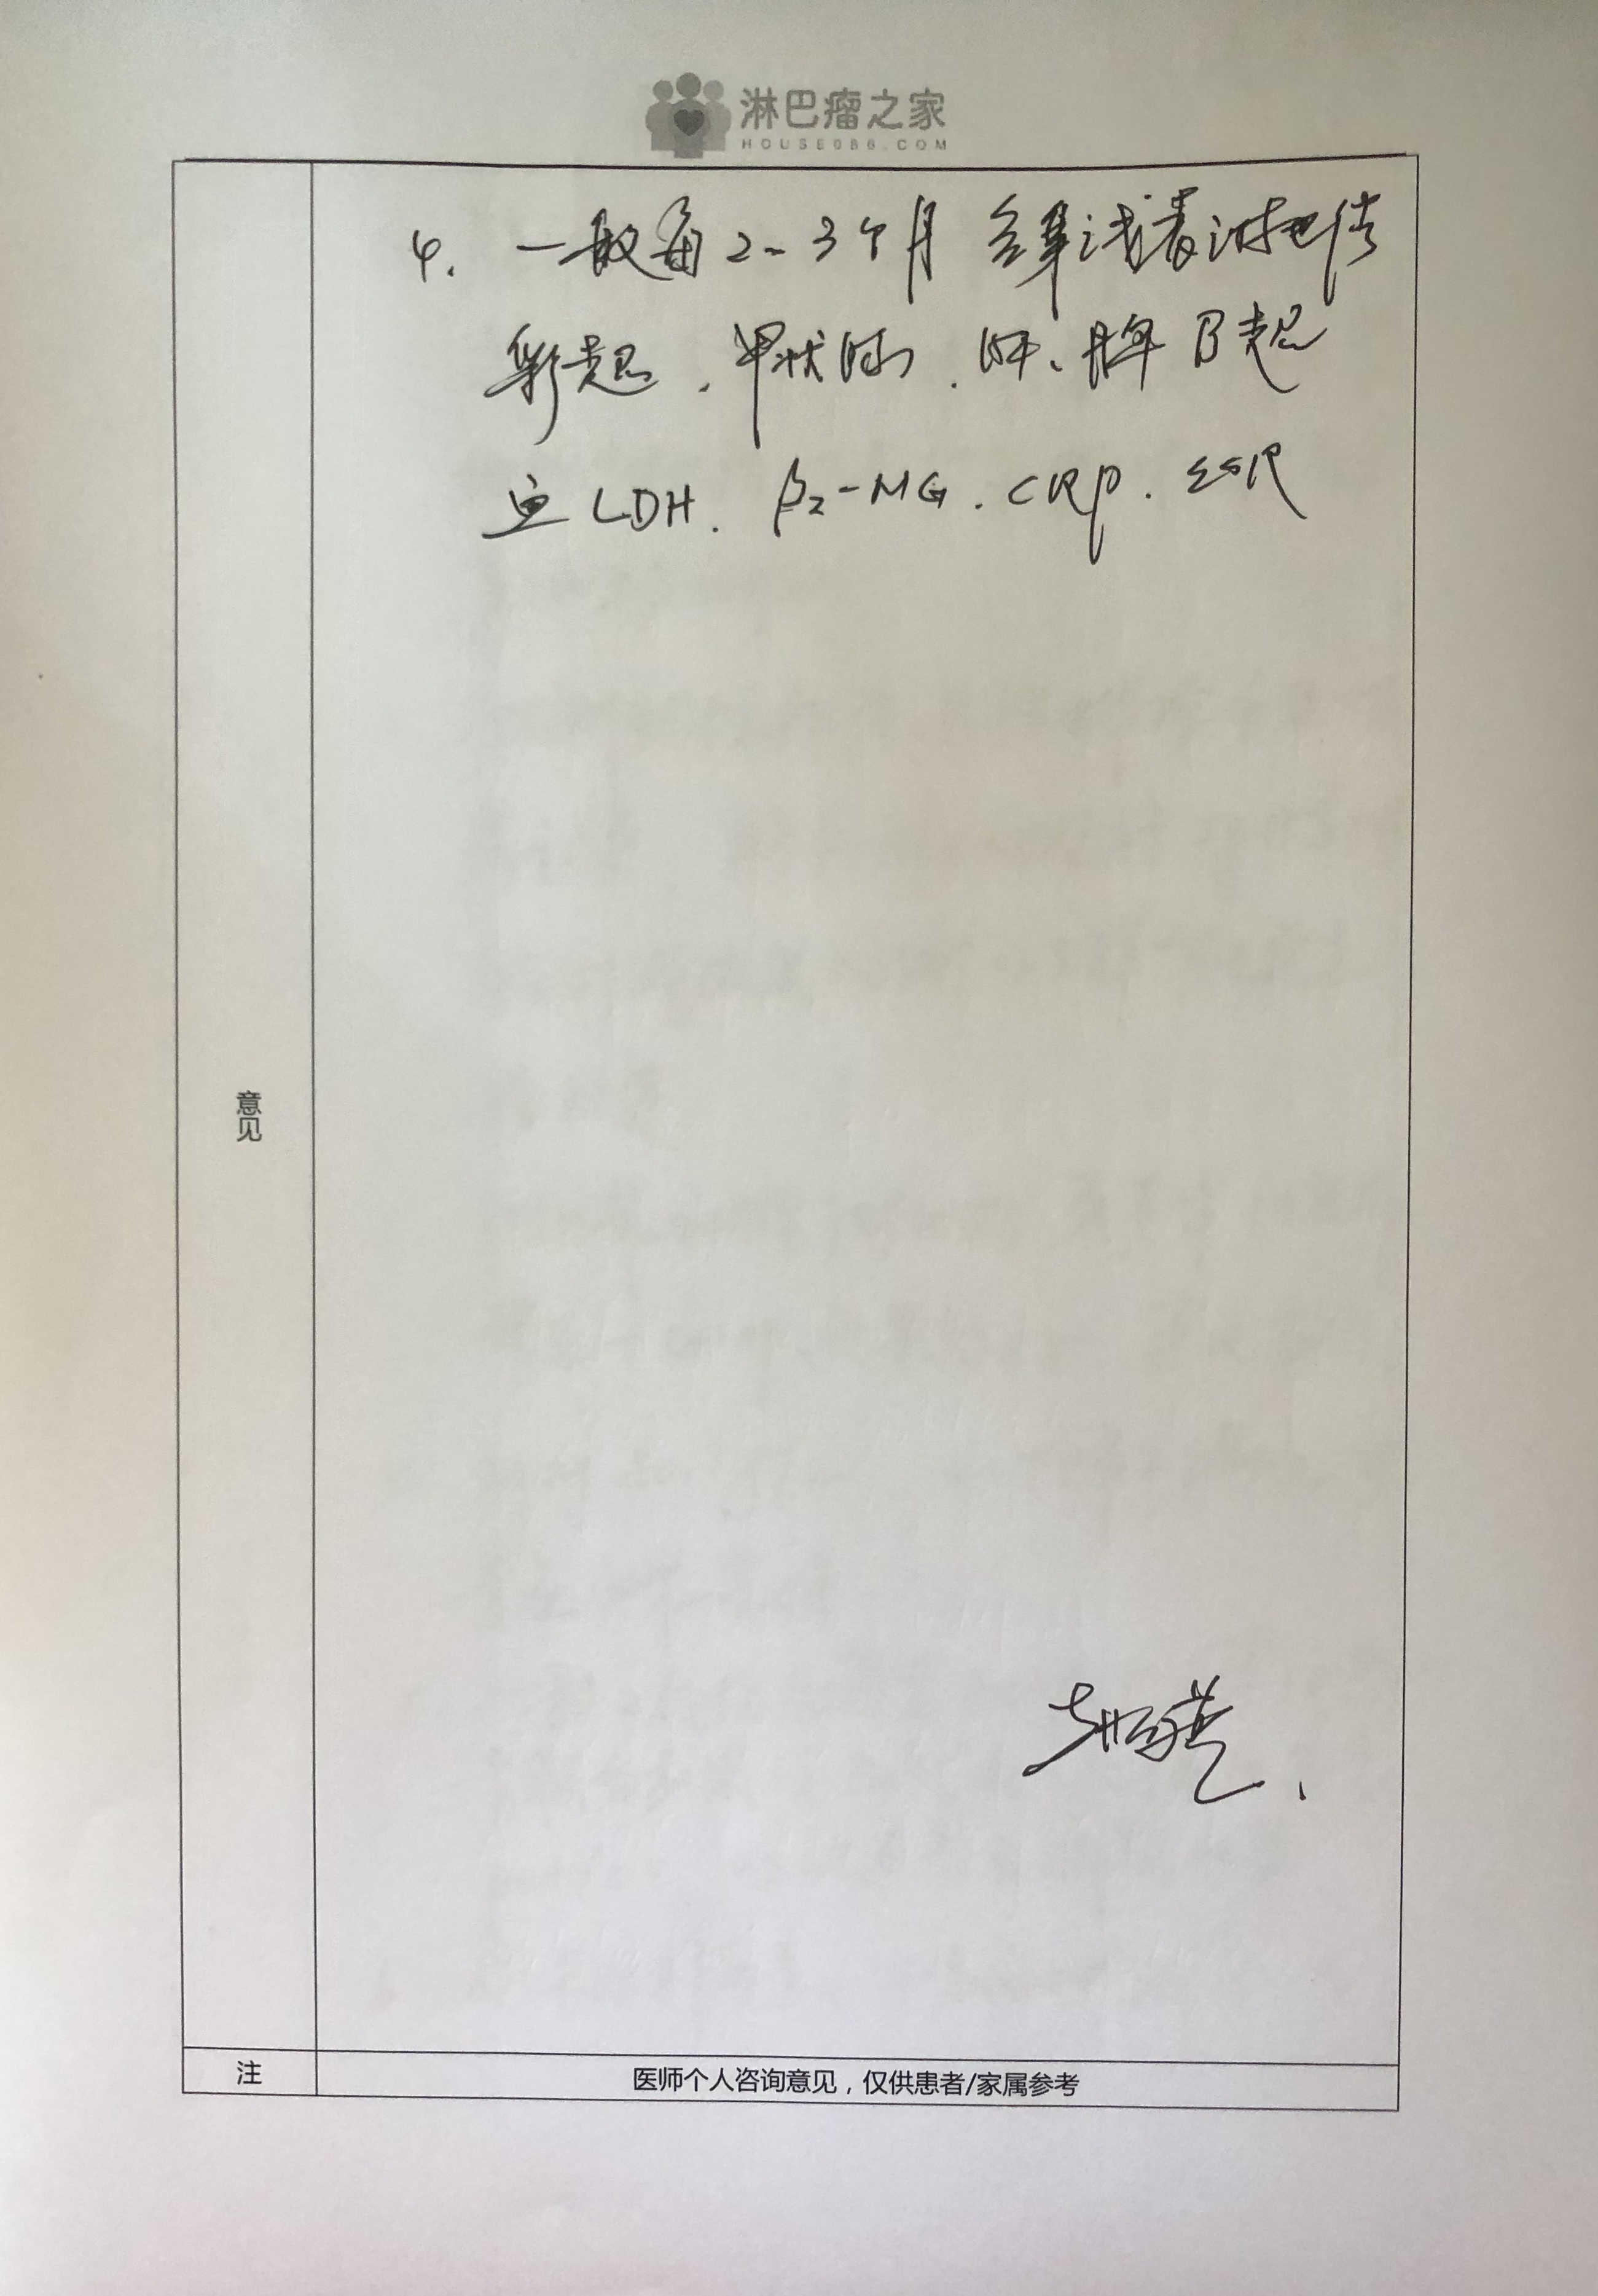 淋巴瘤之家
HOUSE086.COM
4. 一般每2-3个月 全身浅表淋巴结
彩超、甲状腺、肝、脾B超
查LDH、β2-MG、CRP、ESR
意见
注
医师个人咨询意见，仅供患者/家属参考